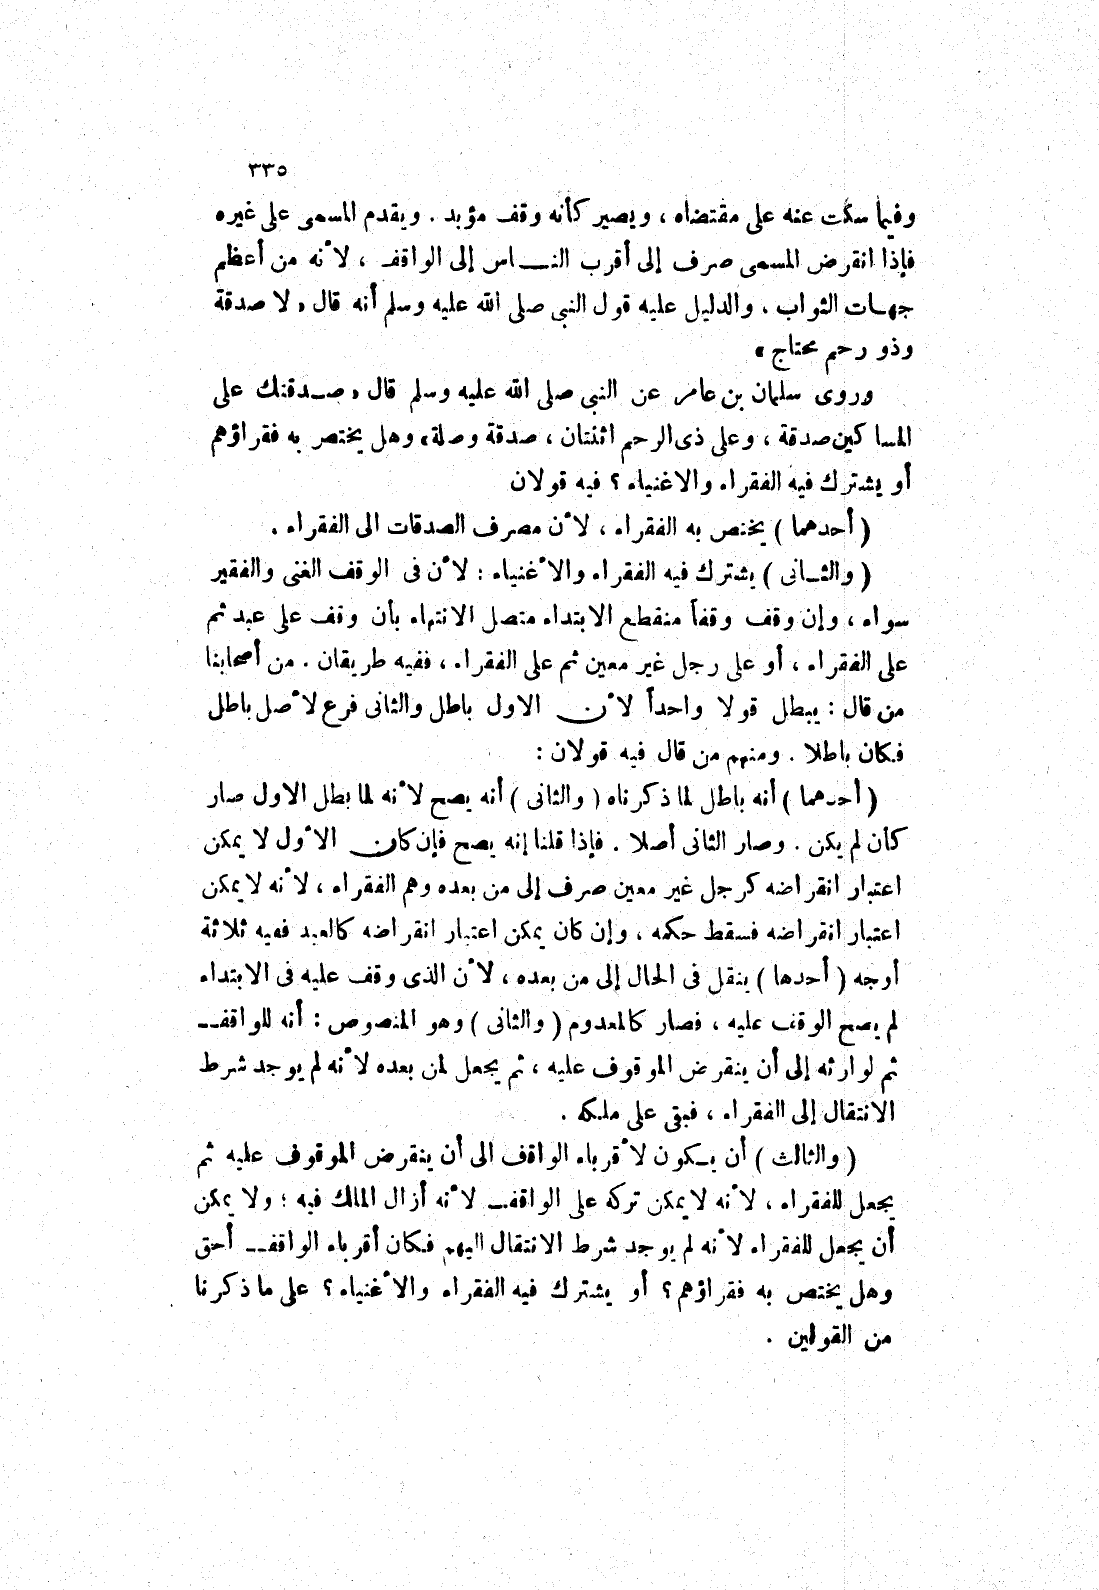 ٣٣٥
وفيما سكت عنه على مقتضاه ، ويصير كأنه وقف مؤبد . ويقدم المسمى على غيره
فإذا انقرض المسمى صرف إلى أقرب النـــاس إلى الواقف ، لأنه من أعظم
جهات الثواب ، والدليل عليه قول النبى صلى الله عليه وسلم أنه قال « لا صدقة
وذو رحم محتاج »
وروى سلمان بن عامر عن النبى صلى الله عليه وسلم قال « صـدقتك على
المساكين صدقة ، وعلى ذى الرحم اثنتان ، صدقة وصلة » وهل يختص به فقراؤهم
أو يشترك فيه الفقراء والاغنياء ؟ فيه قولان
( أحدهما ) يختص به الفقراء ، لأن مصرف الصدقات الى الفقراء .
( والثـانى ) يشترك فيه الفقراء والأغنياء : لأن فى الوقف الغنى والفقير
سواء ، وإن وقف وقفاً منقطع الابتداء متصل الانتهاء بأن وقف على عبد ثم
على الفقراء ، أو على رجل غير معين ثم على الفقراء ، ففيه طريقان . من أصحابنا
من قال : يبطل قولا واحداً لأن الاول باطل والثانى فرع لأصل باطل
فكان باطلا . ومنهم من قال فيه قولان :
( أحدهما ) أنه باطل لما ذكرناه ( والثانى ) أنه يصح لأنه لما بطل الاول صار
كأن لم يكن . وصار الثانى أصلا . فإذا قلنا إنه يصح فإن كان الأول لا يمكن
اعتبار انقراضه كرجل غير معين صرف إلى من بعده وهم الفقراء ، لأنه لا يمكن
اعتبار انقراضه فسقط حكمه ، وإن كان يمكن اعتبار انقراضه كالعبد ففيه ثلاثة
أوجه ( أحدها ) ينقل فى الحال إلى من بعده ، لأن الذى وقف عليه فى الابتداء
لم يصح الوقف عليه ، فصار كالمعدوم ( والثانى ) وهو المنصوص : أنه للواقف
ثم لوارثه إلى أن ينقرض الموقوف عليه ، ثم يجعل لمن بعده لأنه لم يوجد شرط
الانتقال إلى الفقراء ، فبقى على ملكه .
( والثالث ) أن يـكون لأقرباء الواقف الى أن ينقرض الموقوف عليه ثم
يجعل للفقراء ، لأنه لا يمكن تركه على الواقف لأنه أزال الملك فيه ؛ ولا يمكن
أن يجعل للفقراء لأنه لم يوجد شرط الانتقال اليهم فكان أقرباء الواقف أحق
وهل يختص به فقراؤهم ؟ أو يشترك فيه الفقراء والأغنياء ؟ على ما ذكرنا
من القولين .